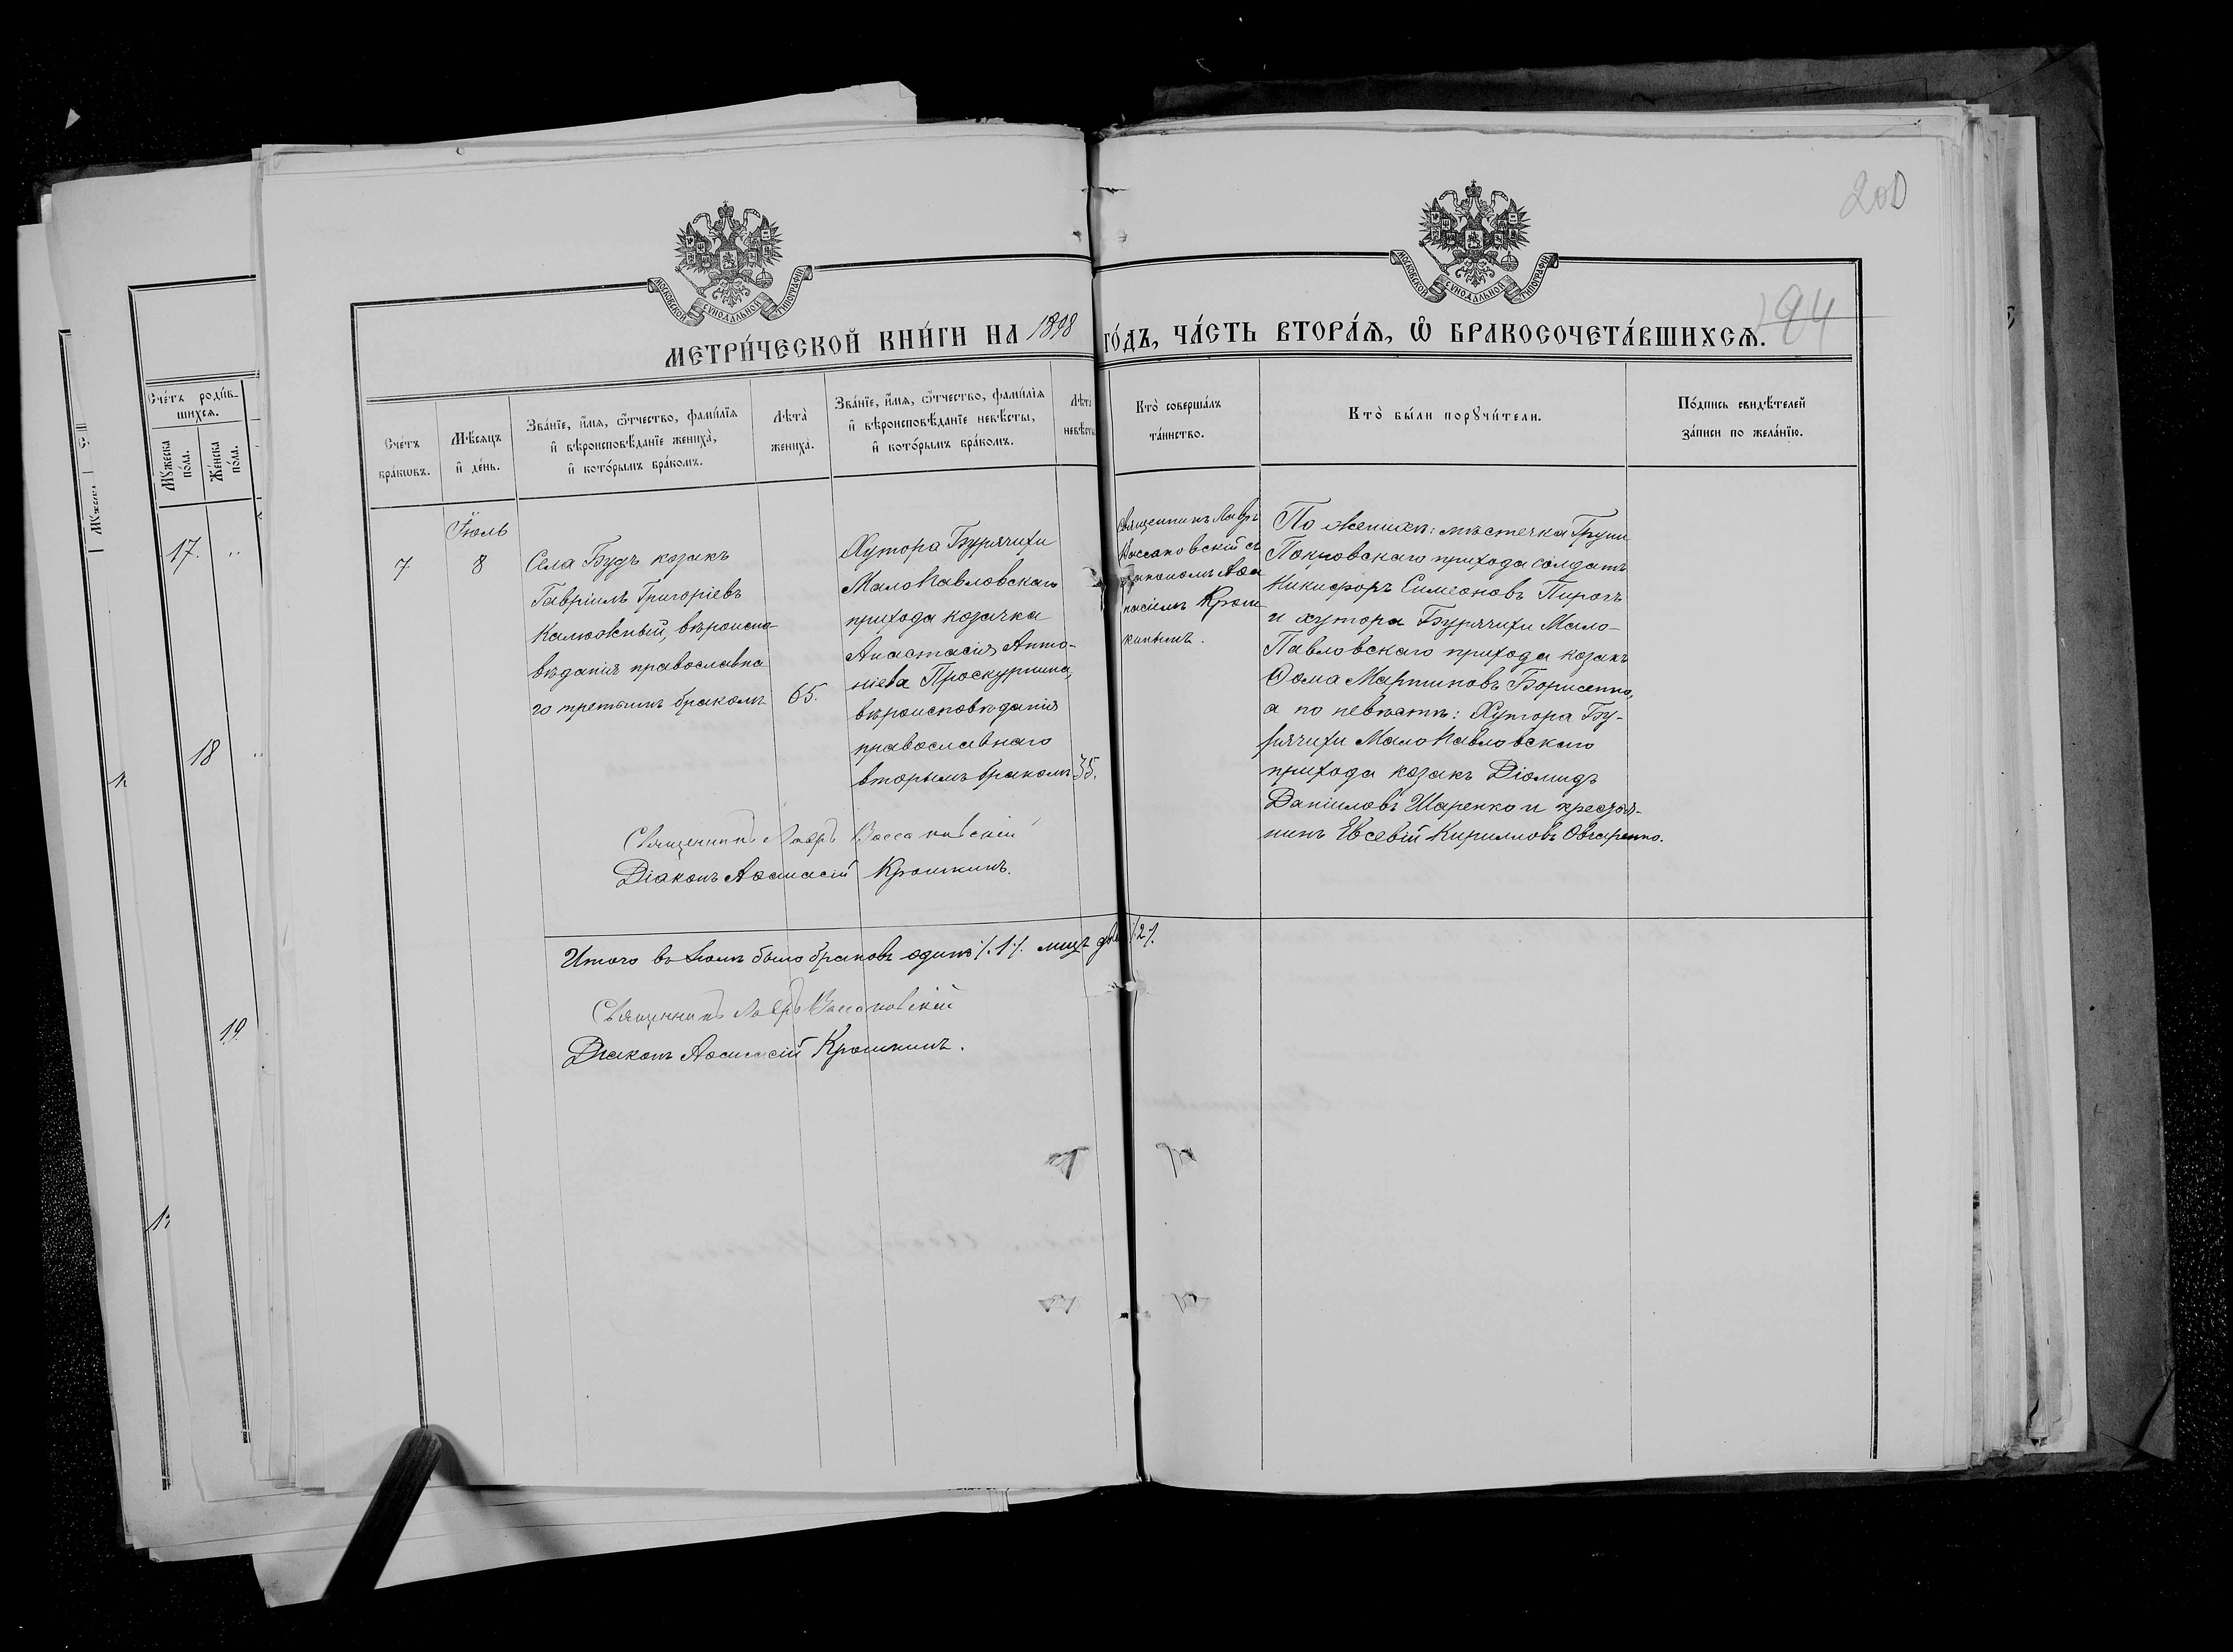 200
194
МОСКОВСКОЙ СѴНОДАЛЬНОЙ ТИПОГРАФІИ
МОСКОВСКОЙ СѴНОДАЛЬНОЙ ТИПОГРАФІИ
МЕТРИ́ЧЕСКОЙ КНИ́ГИ НА 1898 ГО́ДЪ, ЧА́СТЬ ВТОРА́Ѧ, Ѡ҆ БРАКОСОЧЕТА́ВШИХСѦ.
Сче́тъ роди́в-
шихсѧ.
Мꙋжеска
по́ла.
Же́нска
по́ла.
17.
18
19.
Сче́тъ
бра́кѡвъ.
Мѣ́сѧцъ
и҆ де́нь.
Зва́нїе, и҆́мѧ, ѻ҆́тчество, фами́лїѧ
и҆ вѣроисповѣ́данїе жениха̀,
и҆ кото́рымъ бра́комъ.
Лѣ́та̀
жениха̀.
Зва́нїе, и҆́мѧ, ѻ҆́тчество, фами́лїѧ
и҆ вѣроисповѣ́данїе невѣ́сты,
и҆ кото́рымъ бра́комъ.
Лѣта̀
невѣсты
Кто̀ соверша́лъ
та́инство.
Кто̀ бы́ли порꙋчи́тели.
По́дпись свидѣ́телей
за́писи по жела́нїю.
Іюль
7
8
Села Будъ козакъ
Гавріилъ Григоріевъ
Калюжный, вѣроиспо-
вѣданія православна
го третьимъ бракомъ
65.
Хутора Бурячихи
МалоПавловскаго
прихода козачка
Анастасія Анто-
ніева Проскурнина,
вѣроисповѣданія
православнаго
вторымъ бракомъ
35.
Священникъ Лавръ
съ
діакономъ Аѳа
насіемъ Крош
кинымъ.
По женихѣ: мѣстечка Груни
Покровскаго прихода солдатъ
Никифоръ Симеоновъ Пирогъ
и хутора Бурячихи Мало-
Павловскаго прихода козакъ
Ѳома Мартиновъ Борисенко,
а по невѣстѣ: Хутора Бу-
рячихи МалоПавловскаго
прихода козакъ Діомидъ
Даніиловъ Шаренко и крестья-
нинъ Евсевій Кирилловъ Овчаренко.
Священникъ Лавръ
Діаконъ Аѳанасій Крошкинъ.
Итого въ Іюлѣ было браковъ одинъ /.1/. лицъ два /.2/.
Священникъ Лавръ
Діаконъ Аѳанасій Крошкинъ.